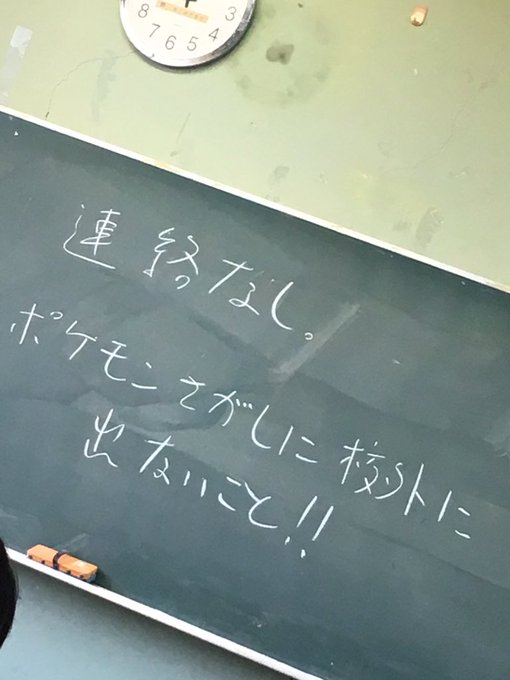 8
7
6
5
4
3
連絡なし。
ポケモンさがしに校外に
出ないこと!!